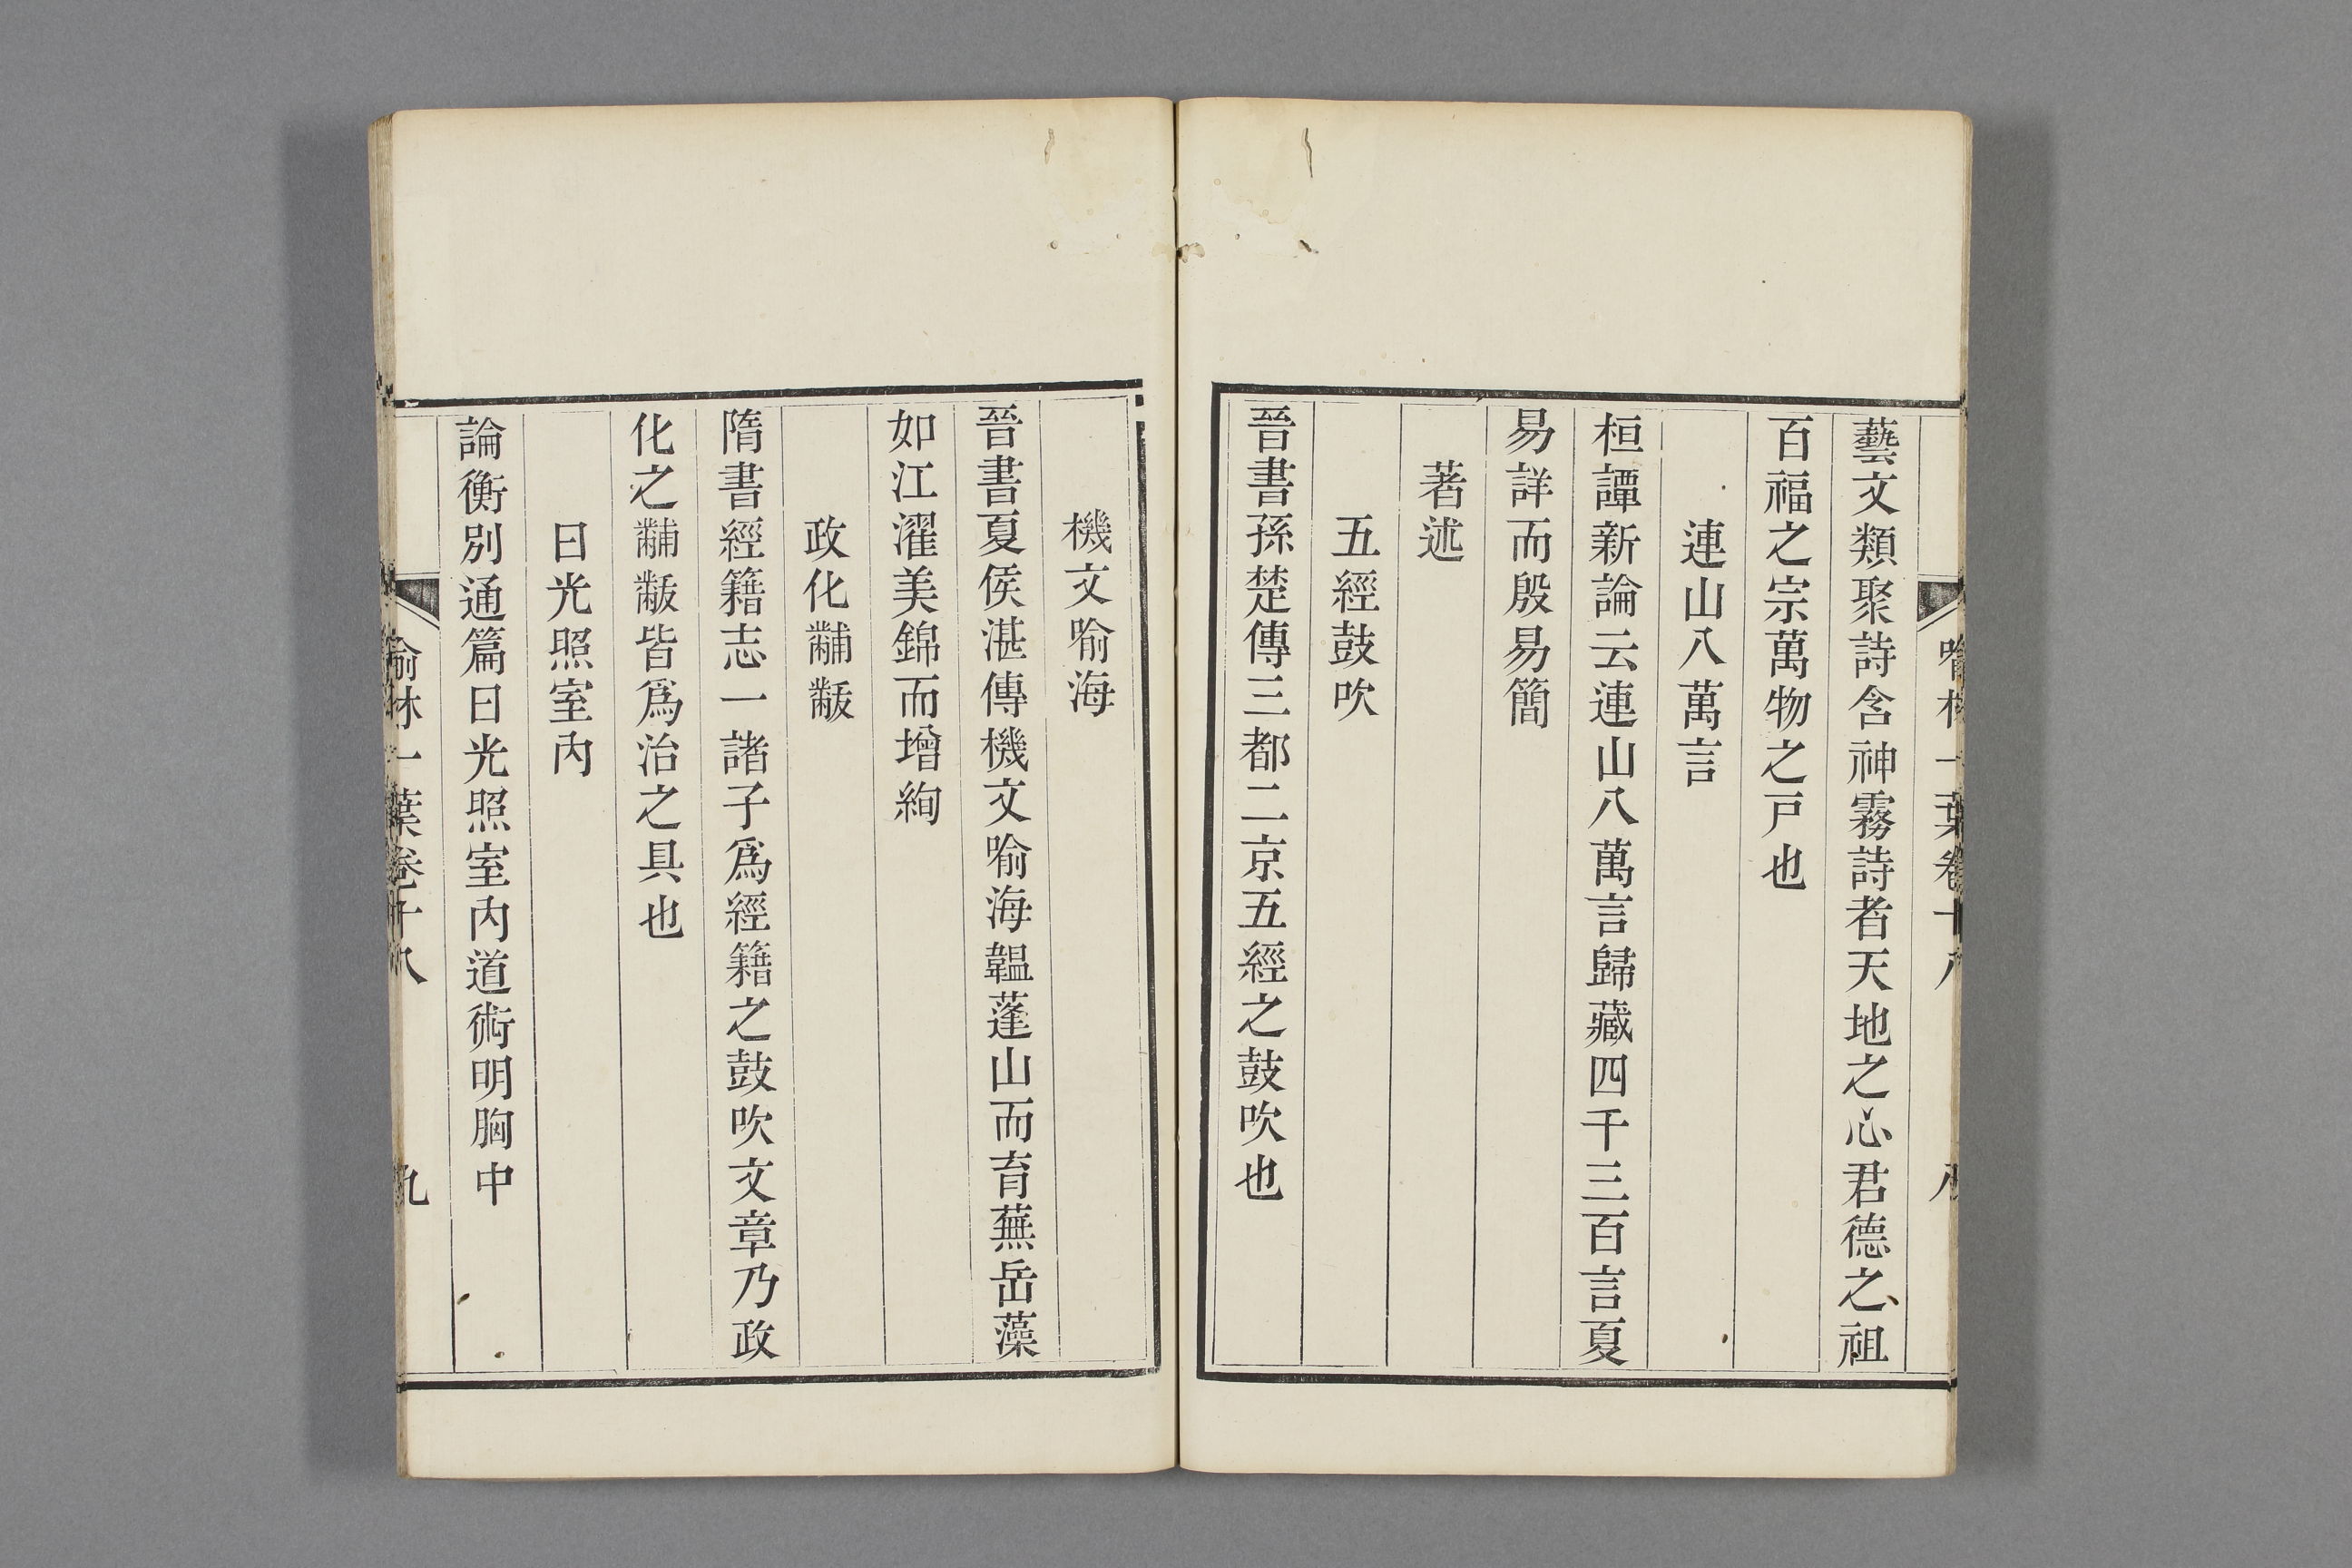 藝文類聚詩含神霧詩者天地之心君德之祖
百福之宗萬物之戸也
連山八萬言
桓譚新論云連山八萬言歸藏四千三百言夏
易詳而殷易簡
著述
五經鼓吹
晉書孫楚傳三都二京五經之鼓吹也
機文喻海
晉書夏侯湛傳機文喻海韞蓬山而育蕪岳藻
如江濯美錦而增絢
政化黼黻
隋書經籍志一諸子爲經籍之鼓吹文章乃政
化之黼黻皆爲治之具也
日光照室內
論衡別通篇日光照室內道術明胸中
喻林一葉卷十八
九